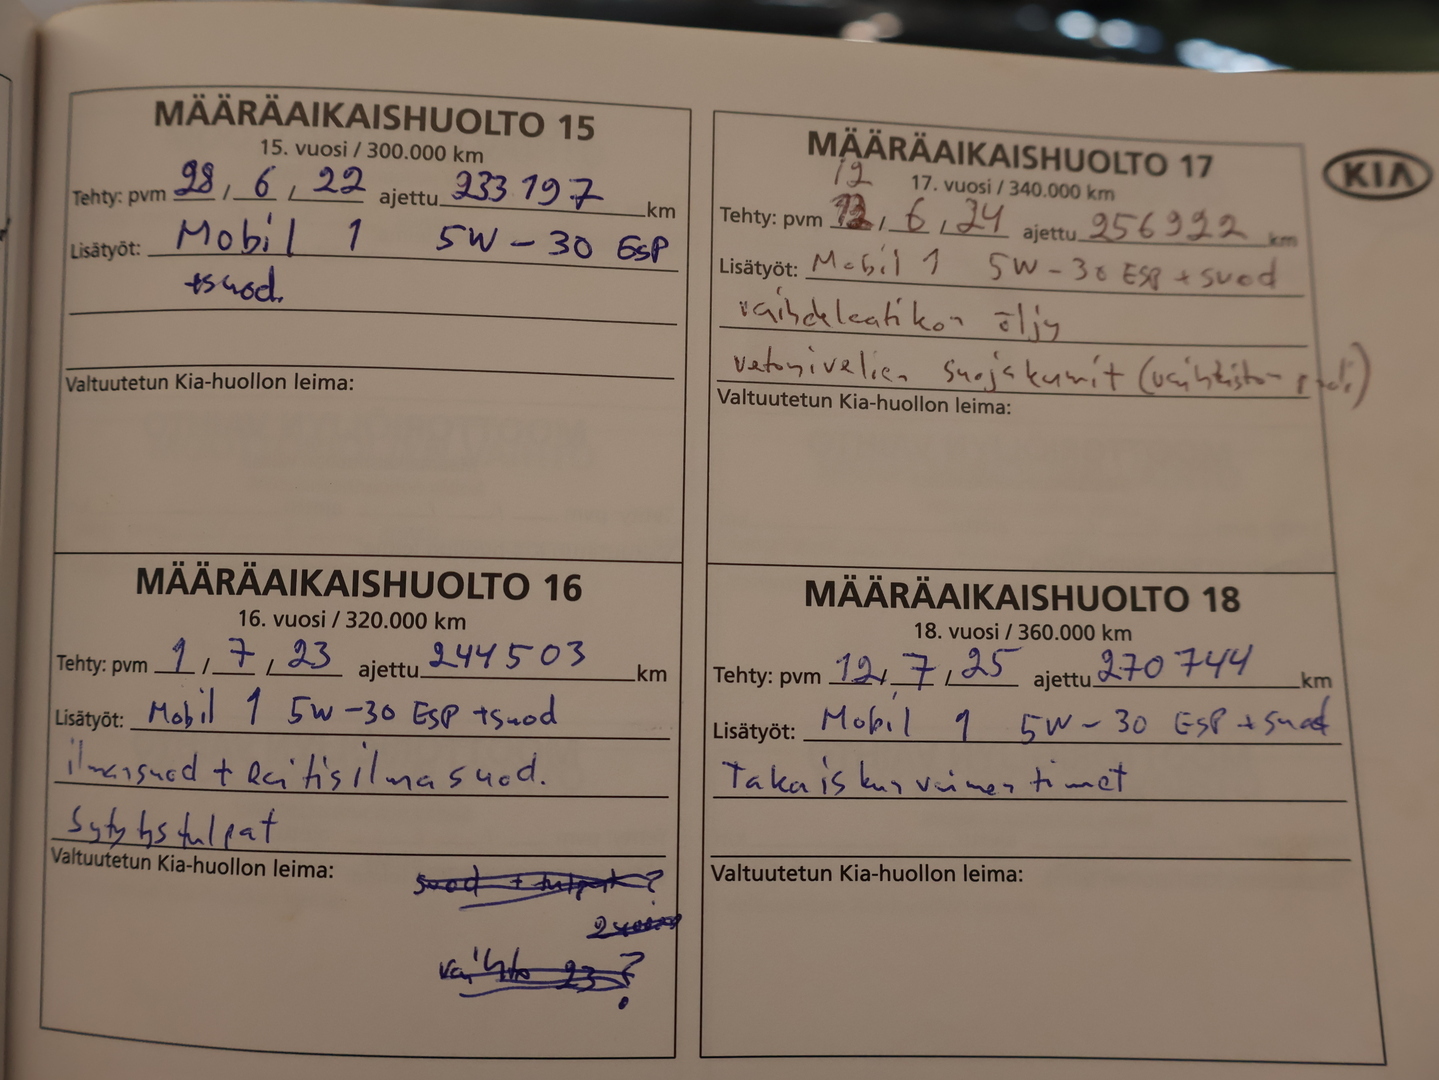 MÄÄRÄAIKAISHUOLTO 15
15. vuosi / 300.000 km
Tehty: pvm 28 / 6 / 22 ajettu 233 197 km
Lisätyöt: Mobil 1 5W-30 ESP
+suod.
Valtuutetun Kia-huollon leima:
MÄÄRÄAIKAISHUOLTO 16
16. vuosi / 320.000 km
Tehty: pvm 1 / 7 / 23 ajettu 244 503 km
Lisätyöt: Mobil 1 5W-30 ESP +suod
ilmansuod + Raitisilmasuod.
Sytytystulpat
Valtuutetun Kia-huollon leima:
suod + tulpat ?
vaihto 23 ?
MÄÄRÄAIKAISHUOLTO 17
17. vuosi / 340.000 km
12
Tehty: pvm 12 / 6 / 24 ajettu 256922 km
Lisätyöt: Mobil 1 5W-30 ESP + suod
vaihdelaatikon öljy
vetonivelien suojakumit (vaihteiston puoli)
Valtuutetun Kia-huollon leima:
KIA
MÄÄRÄAIKAISHUOLTO 18
18. vuosi / 360.000 km
Tehty: pvm 12 / 7 / 25 ajettu 270 744 km
Lisätyöt: Mobil 1 5W-30 ESP + suod
Takaiskunvaimentimet
Valtuutetun Kia-huollon leima: